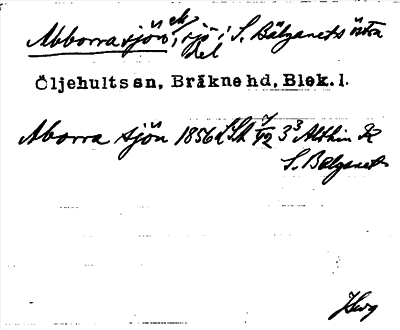 Abborrasjön, sjö i S. Bälganets östra
del
Öljehultssn, Bräknehd, Blek.l.
Aborra sjön 1856 LSA 3³ Althin K
S. Bälganet